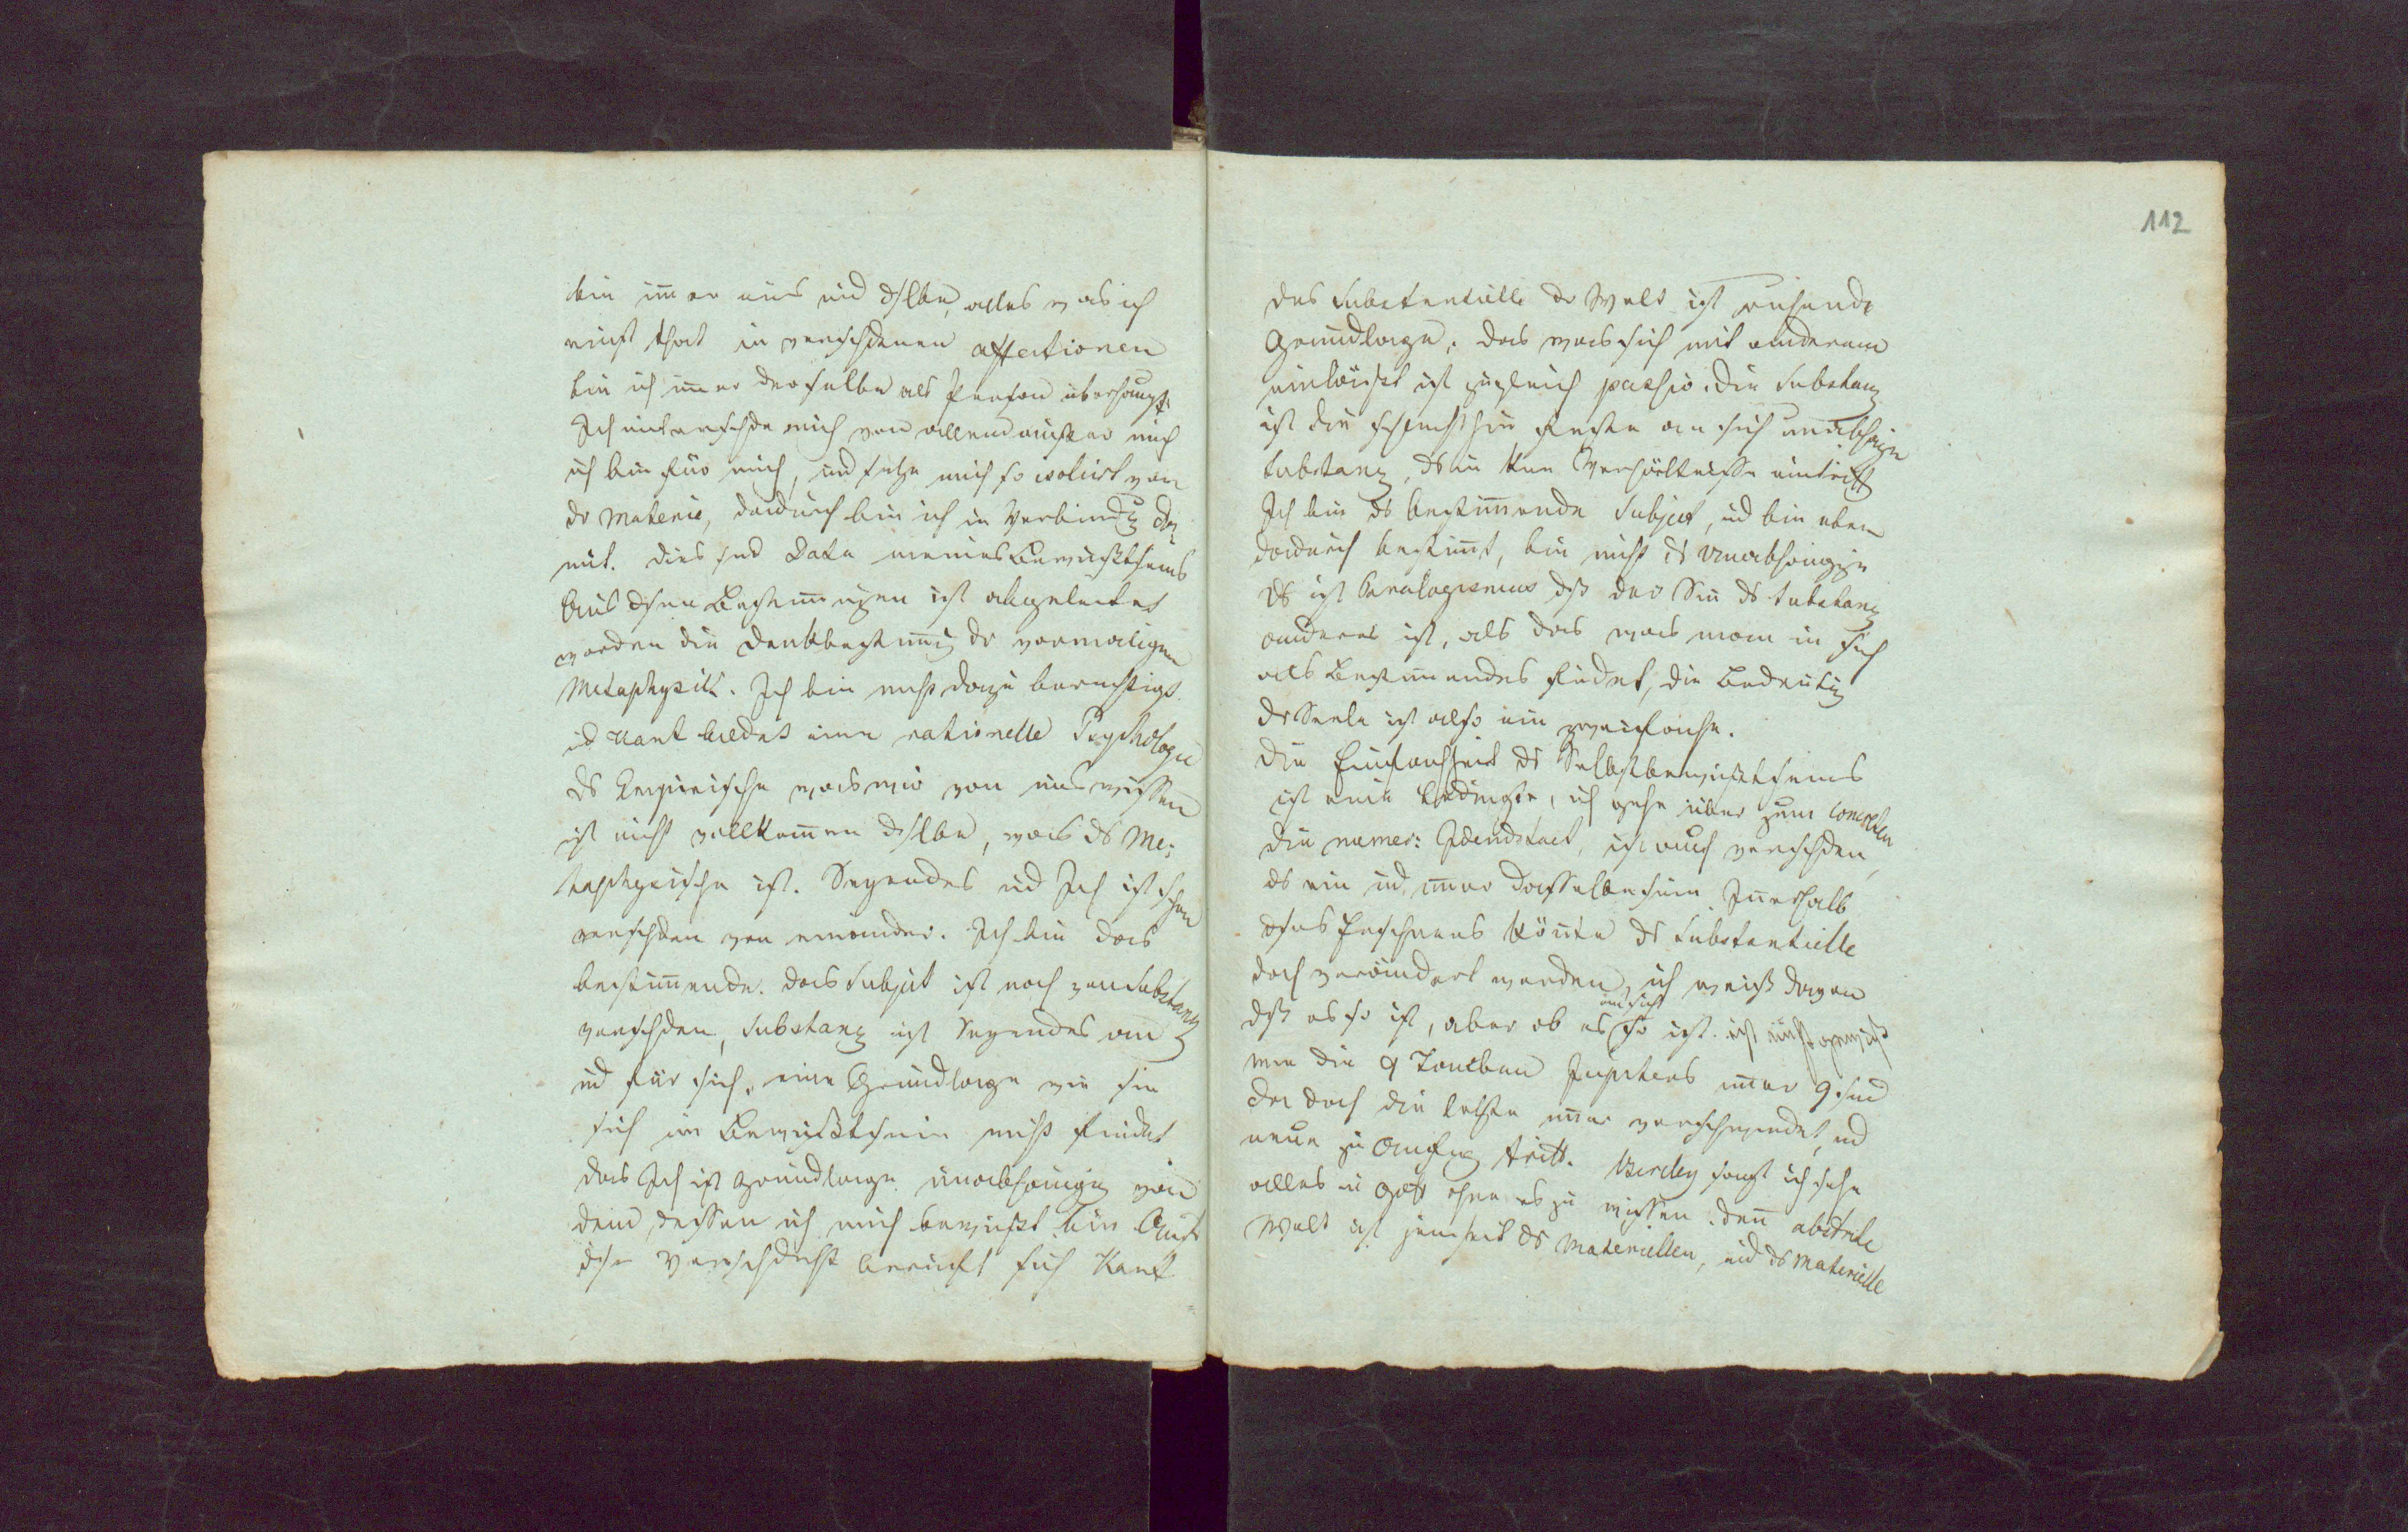 bin im̄er eins und dslbe, alles was ich
einst that in verschdenen affectionen
bin ich im̄er derselbe als Person überhaupt.
Ich unterschde mich von allem außer mich
ich bin für mich, und setze mich so isolirt von
dr Materie, dadurch bin ich in Verbindg da¬
mit. dies sind Data meines Bewußtseins
Aus dsen Bestim̄ungen ist abgeleitet
worden die Denkbestim̄ung dr vormaligen
Metaphysik. Ich bin nicht dazu berechtigt.
ud Kant tadet eine rationelle Psychologie
ds Empirische was wir von uns wissen
ist nicht vollkom̄en dslbe, was ds Me¬
taphysische ist. Seyendes und Ich ist schon
verschden von einander. Ich bin das
bestim̄ende. das Subject ist noch von Substanz
verschden, Substanz ist Seyendes an
ud für sich, eine Grundlage wie sie
sich im Bewußtsein nicht findet
das Ich ist Grundlage unabhängig von
dem dessen ich mich bewußt bin Auf
dse Verschdnht beruft sich Kant
112
das Substantielle dr Welt ist ruhende
Grundlage. das was sich mit anderem
einläßt ist zugleich passiv. die Substanz
ist die schlechthin feste an sich unabhäge
Substanz, ds in kein Verhältnisse eintritt
Ich bin ds bestim̄ende Subject, ud bin eben
dadurch bestim̄t, bin nicht ds Unabhängige
Es ist Paralogismus dß der Sin̄ dr Substanz
anderes ist, als das was man in sich
als Bestim̄endes findet, die Bedeutung
dr Seele ist also ein zweifache.
die Einfachheit ds Selbstbewußtseins
ist eine bedingte, ich gehe über zum concreten
die numer: Identitaet, ist auch verschden,
ds ein und im̄er dasselbe sein. In̄erhalb
dses Erscheinens kön̄te ds Substantielle
doch verändert werden, ich weiß davon
dß es so ist, aber ob es an sich so ist. ist nicht gewiß
wie die 9 Tauben Jupiters im̄er 9 sind
da doch die letzte im̄er verschwindet, und
neue zu Anfang tritt. Bercley sagt ich sehe
alles in Gott ohne es zu wissen. den̄ abstrakte
Welt ist jenseit ds Materiellen, und ds Materielle